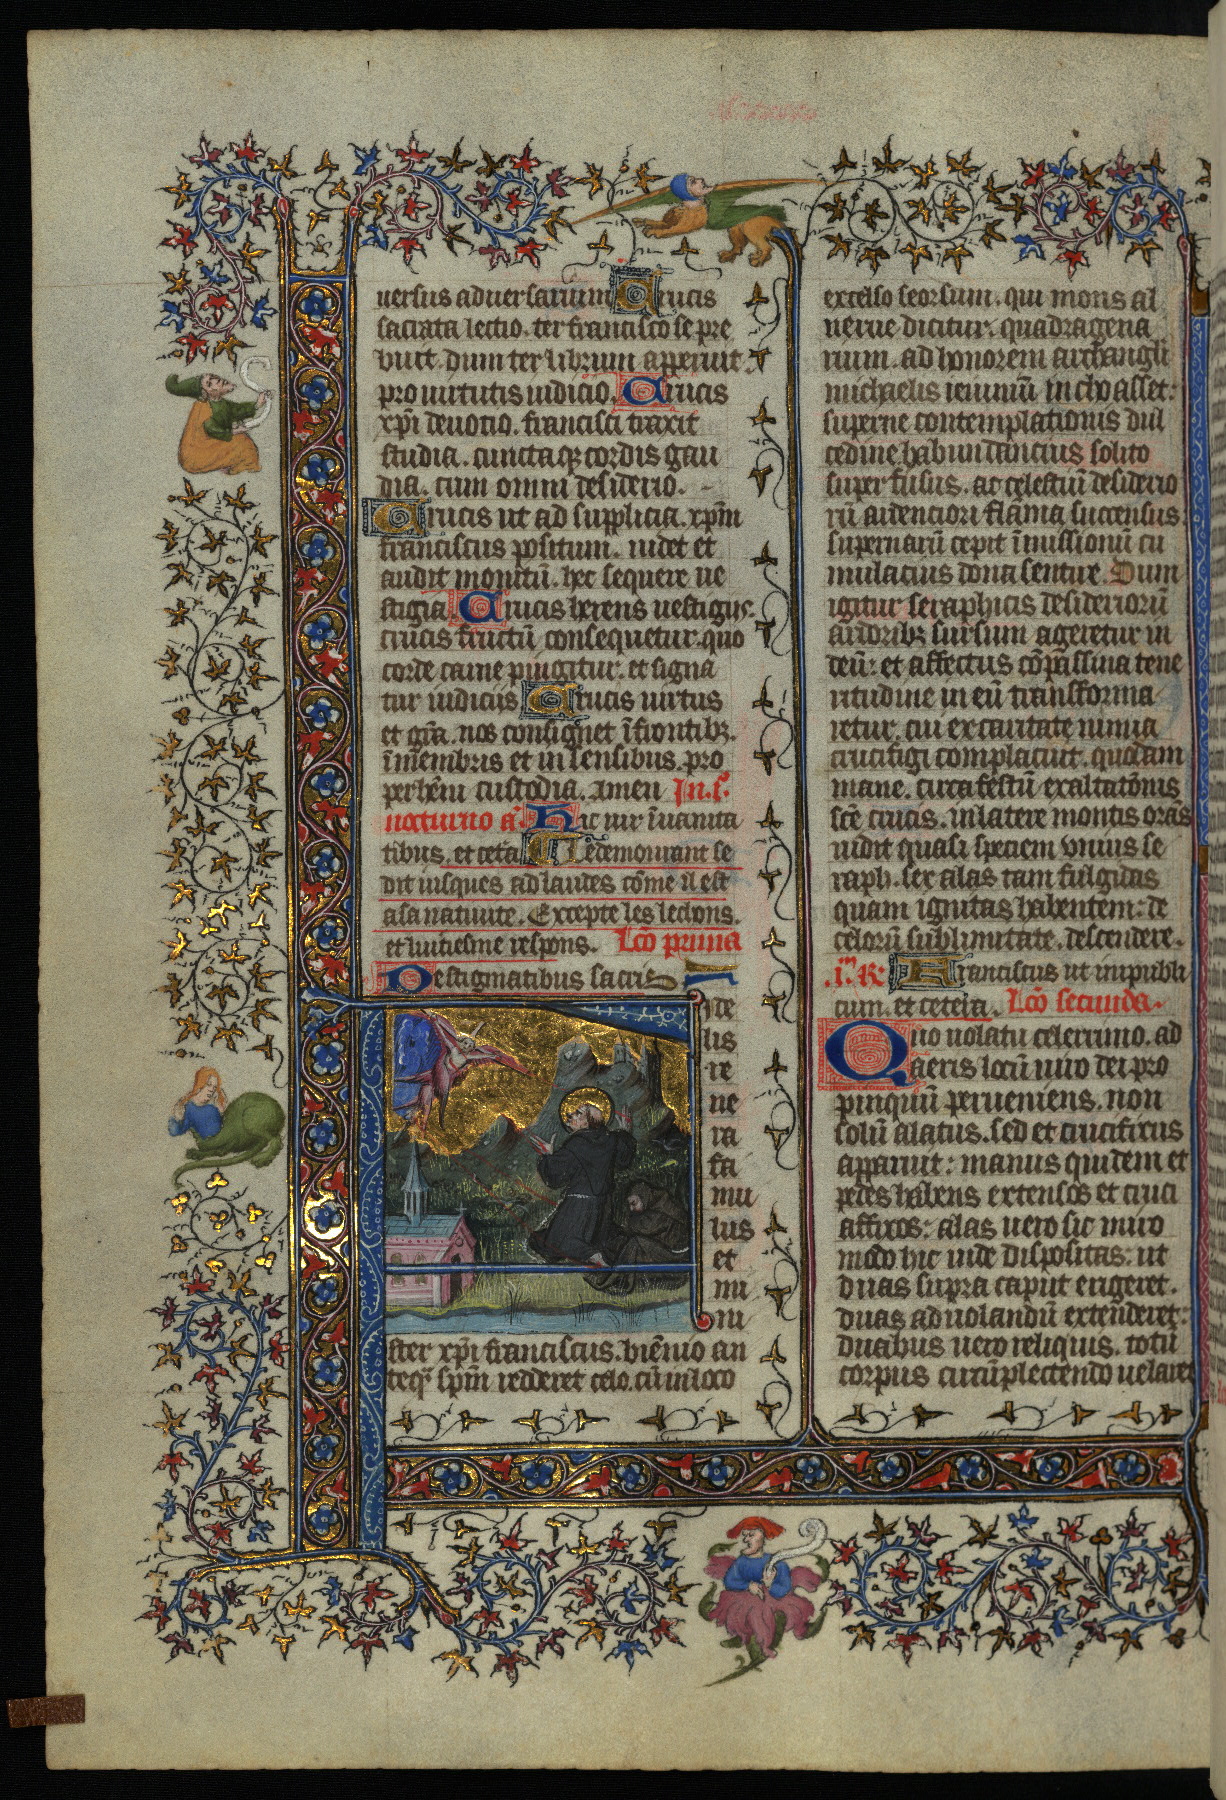 uersus aduersarium Crucis
sacrata lectio. ter francisco se pre
buit. dum ter librum aperuit.
pro uirtutis iudicio. Crucis
xp̄i deuotio. francisci traxit
studia. cunctaqȝ cordis gau
dia. cum omni desiderio.
Crucis ut ad supplicia. xp̄m
franciscus positum. uidet et
audit monitū. hec sequere ue
stigia. Crucis herens uestigijs.
crucis fructū consequetur. quo
corde carne pingitur. et signa
tur iudicijs. Crucis uirtus
et gr̄a. nos consignet ī frontibȝ.
ī membris et in sensibus. pro
perhēni custodia. amen In. j.º
nocturno añ. Hic uir ī uanita
tibus. et cetā. Le demourant se
dit iusques ad laudes cōme il est
a sa natiuite. Excepte les lecions.
et huitiesme respons. Lcō prima
De stigmatibus sacris
te
lis
re
ue
ra
fa
mu
lus
et
mi
ni
ster xp̄i franciscus. biēnio an
teqȝ sp̄m redderet celo. cū in loco
excelso seorsum. qui mons al
uerne dicitur. quadragena
rium. ad honorem archangeli
michaelis ieiuniū inchoasset:
superne contemplationis dul
cedine habundancius solito
superfusus. ac celestiū desiderio
rū ardenciori flāma succensus
supernarū cepit īmissionū cu
mulacius dona sentire. Dum
igitur seraphicis desideriorū
ardoribȝ sursum ageretur in
deū: et affectus cōpassiua tene
ritudine in eū transforma
retur. cui ex caritate nimia
crucifigi complacuit. quodam
mane. circa festū exaltatōnis
scē crucis. in latere montis orās
uidit quasi speciem vnius se
raph. sex alas tam fulgidas
quam ignitas habentem: de
celorū sublimitate. descendere.
.jᵐ. R: Franciscus ut in publi
cum. et cetera. Lcō secunda.
Quo uolatu celerrimo. ad
aeris locū uiro dei pro
pinquū perueniens. non
solū alatus. sed et crucifixus
apparuit: manus quidem et
pedes habens extensos et cruci
affixos: alas uero sic miro
modo hic inde dispositas: ut
duas supra caput erigeret.
duas ad uolandū extenderet:
duabus uero reliquis. totū
corpus circūplectendo uelaret